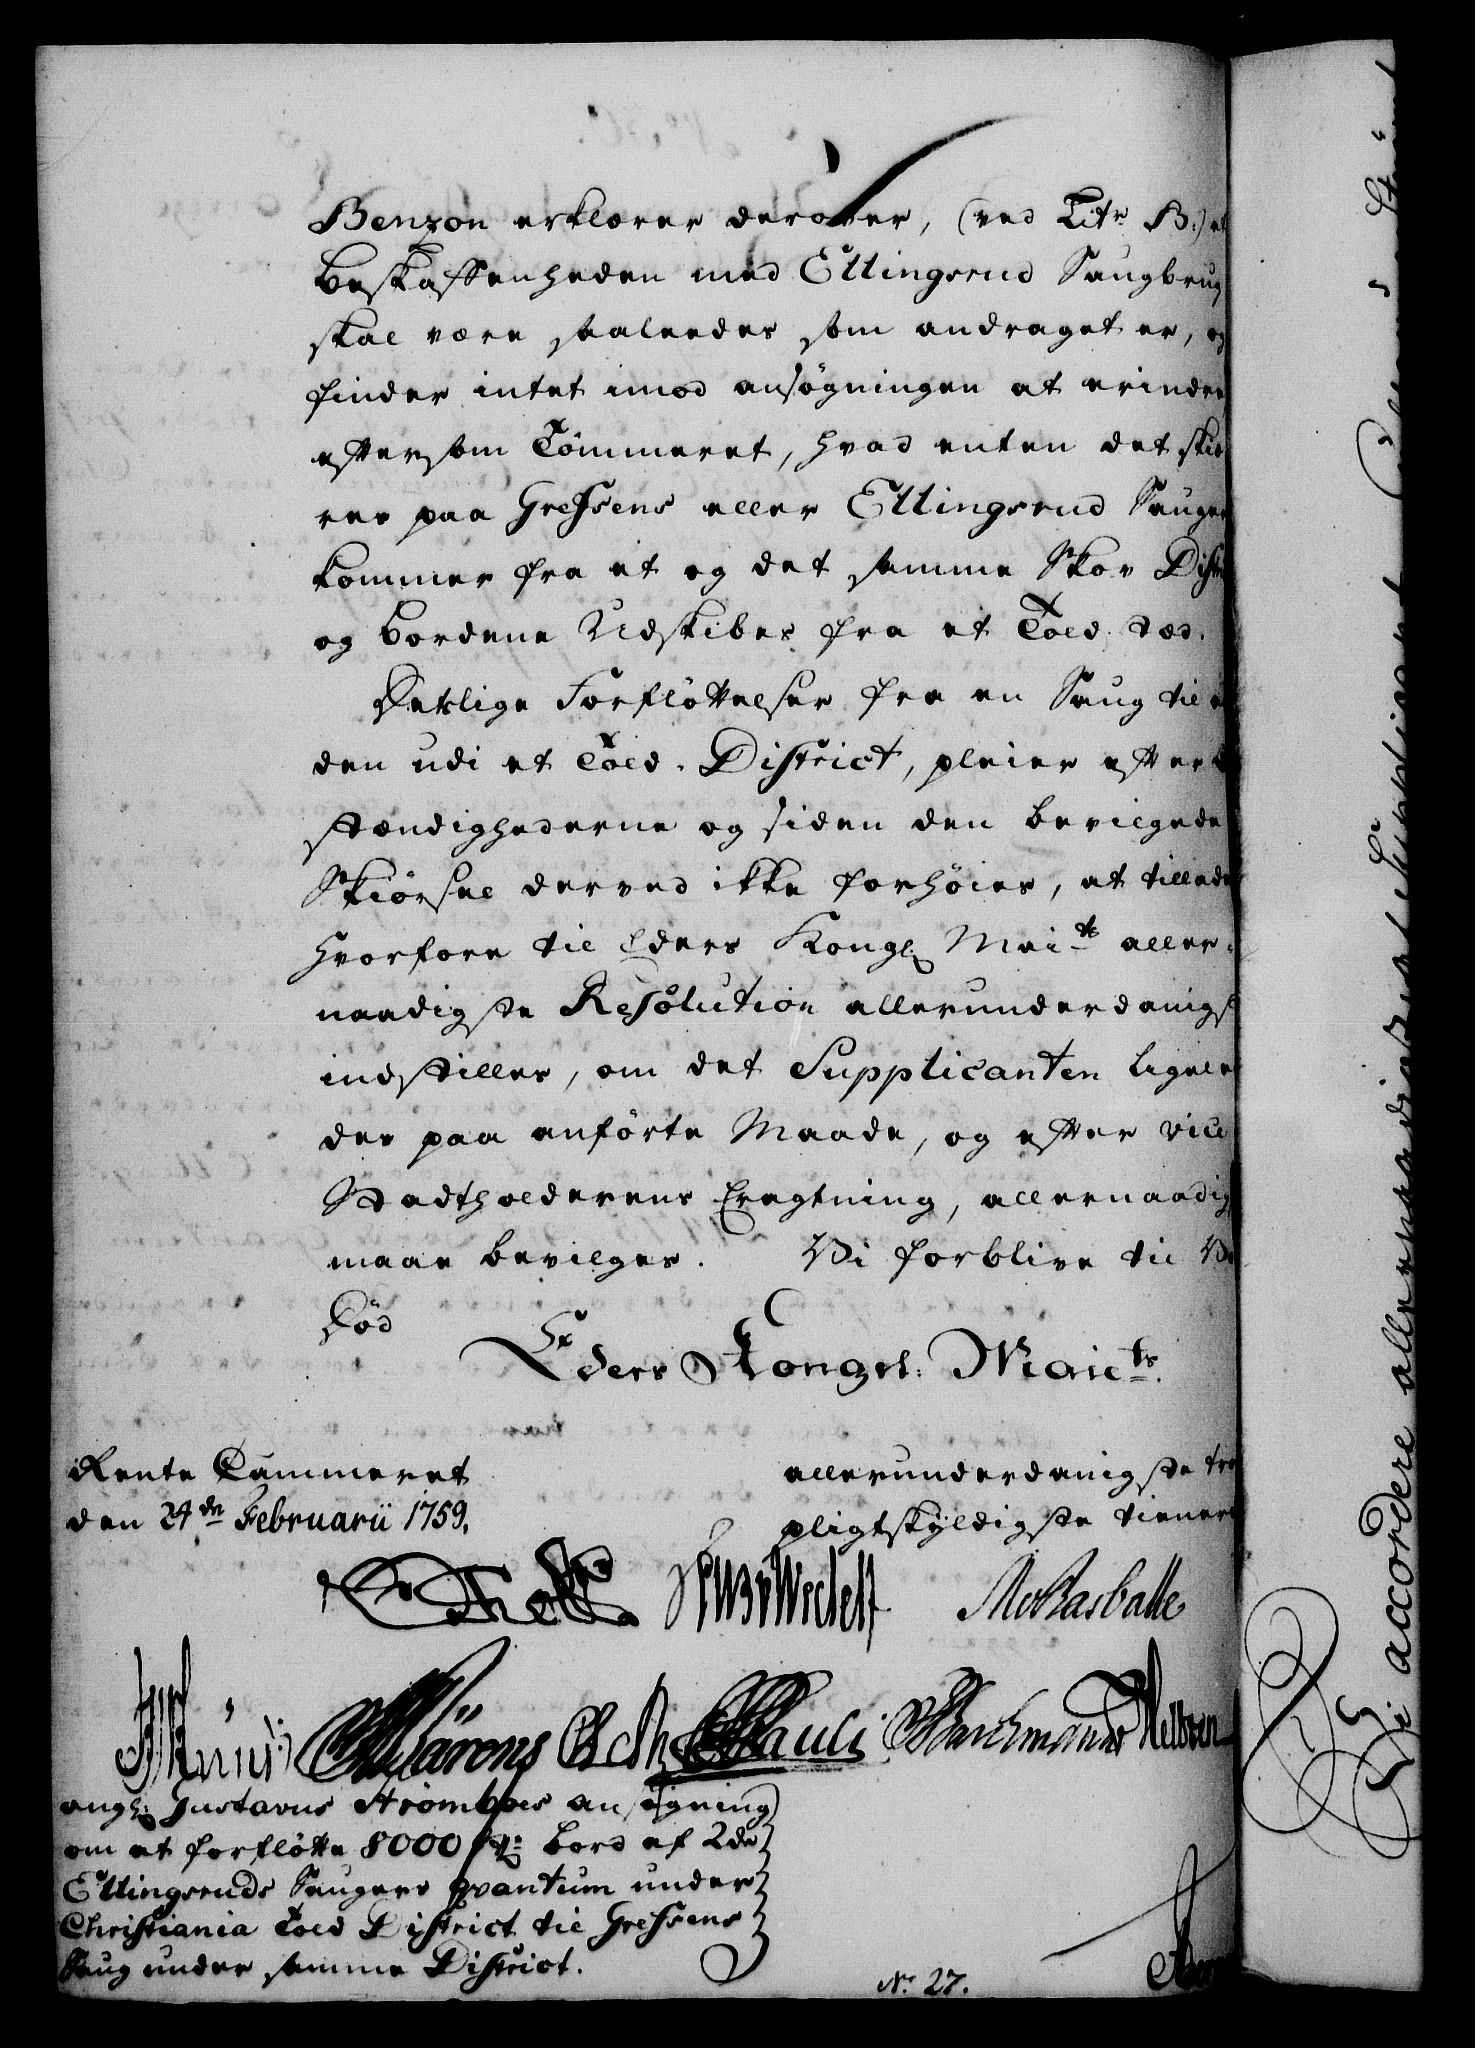 Benzon erklærer derover, (ved Litr B:) at
Beskaffenheden med Ellingsrud Saugbrug
skal være saaledes som andraget er, og
finder intet imod ansøgningen at erindre
eftersom Tömmeret, hvad enten det skiæ
res paa Grefsens eller Ellingsrud Sauger
kommer fra et og det samme Skov Distr
og bordene Udskibes fra et Told-sted.
Deslige Forflöttelser fra en Saug til
den udi et Told-District, pleier efter
stændighederne og siden den bevilgede
Skiörsel derved ikke forhöies, at tillade
hvorfore til Eders Kongl: Mai-ts aller-
naadigste Resolution allerunderdanigst
indstilles, om det Supplicanten ligele
des paa anförte Maade, og efter vice
Stadtholderens Eragtning, allernaadig
maae bevilges. Vi forblive til
Död
Eders Kongel: Maiets.
Rente Cammeret
den 24de Februarii 1759.
allerunderdanigste tro
pligtskyldigste tienere
angl: Gustavus Strömboes ansögning
om at forflötte 8000 st: bord af 2de
Ellingsruds Saugers qvantum under
Christiania Told District til Grefsens
Saug under samme District.
No 27.
Vi accordere allernaadigst